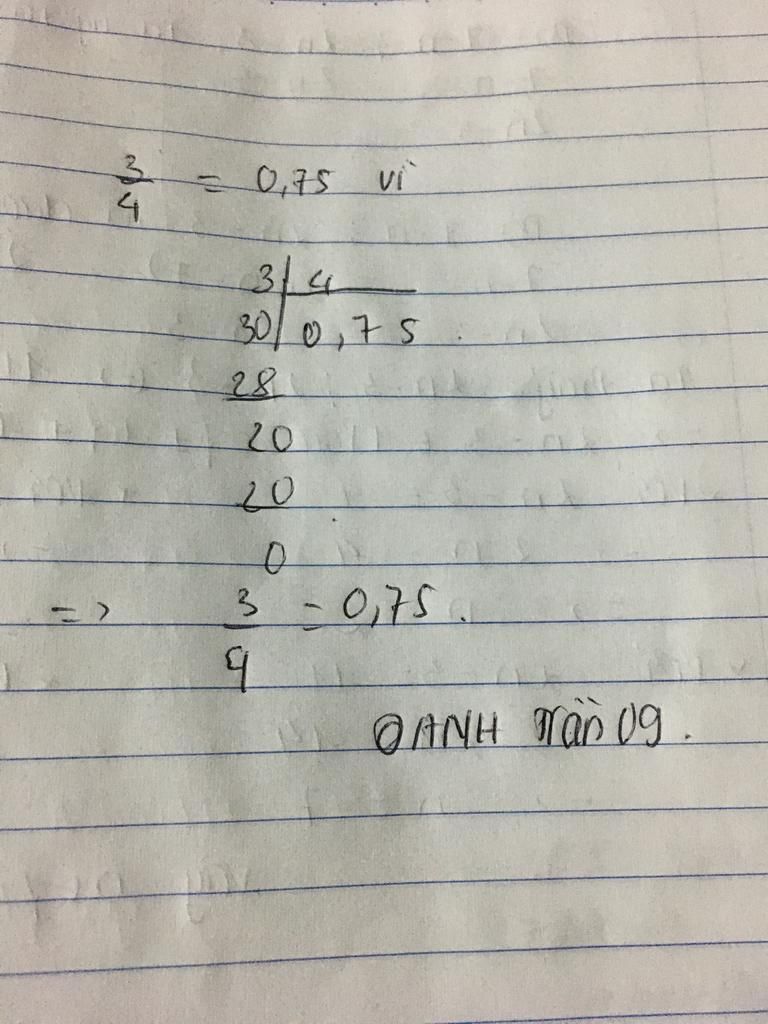 3/4 = 0,75 vì
3 | 4
30 | 0,75
28
20
20
0
=> 3/4 = 0,75.
OANH Trần 09.